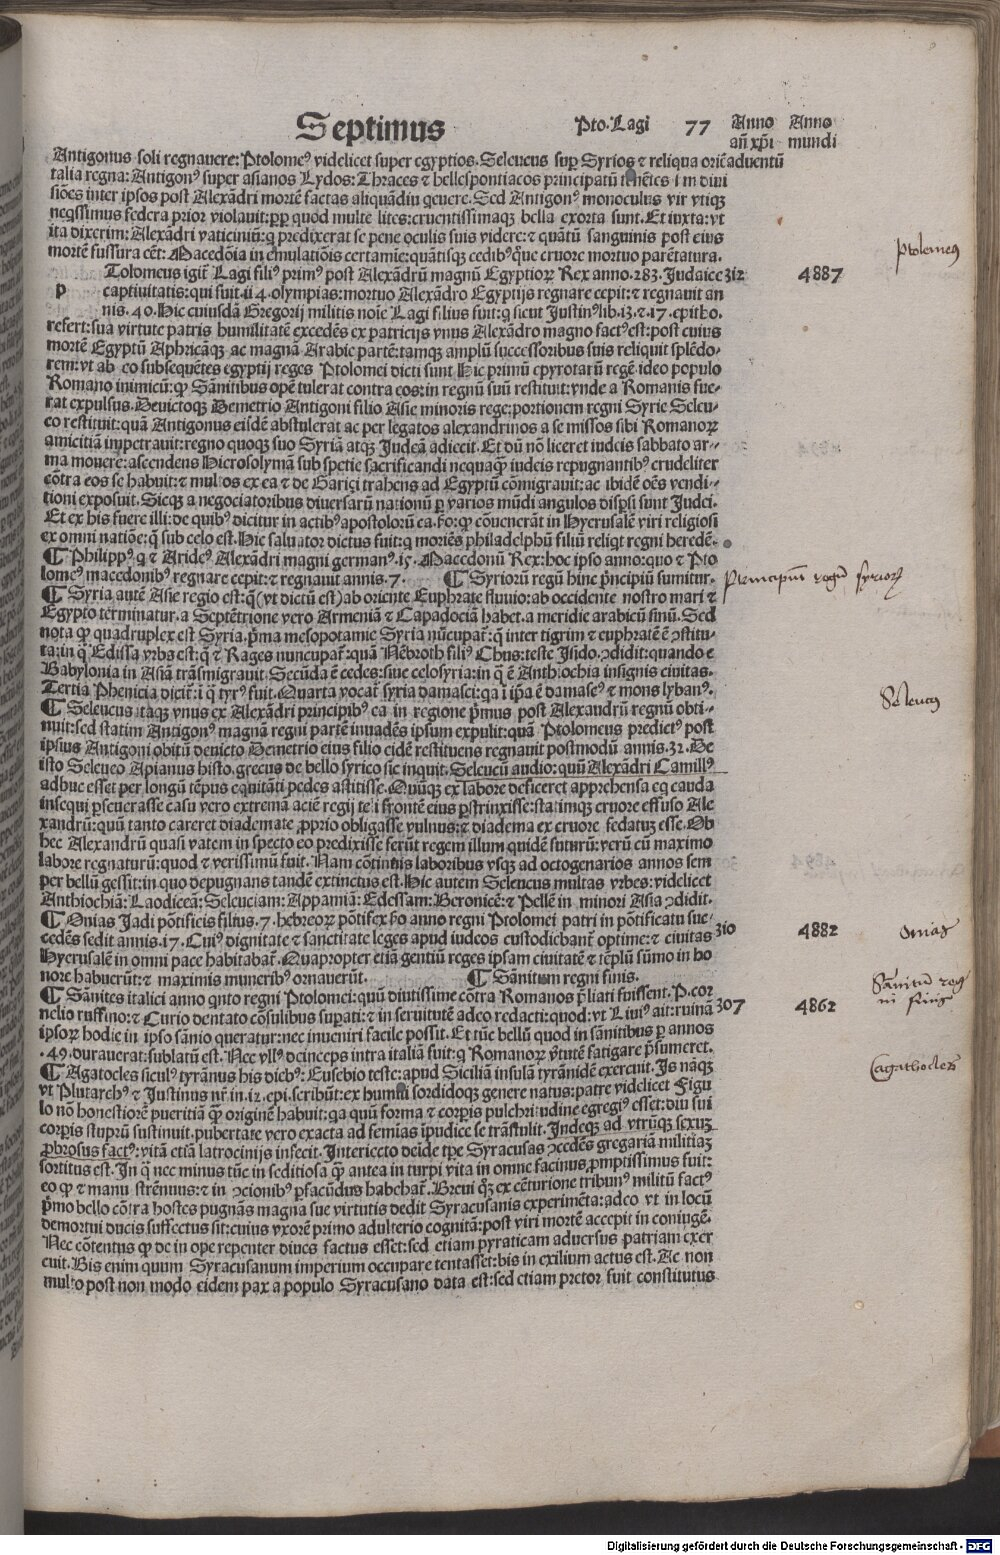 Septimus Pto. Lagi 77 Anno Anno
añ xp̄i mundi
Antigonus soli regnauere: Ptolomeꝰ videlicet super egyptios. Seleucus sup̱ Syrios ⁊ reliqua oriē aduentū
talia regna: Antigonꝰ super asianos Lydos: Thraces ⁊ hellespontiacos principatū tenētes
siões inter ipsos post Alexãdri mortē factas aliquãdiu qeuere. Sed Antigonꝰ monoculus vir vtiqꝫ
neqssimus federa prior violauit: ꝓp̱ quod multe lites: cruentissimaqꝫ bella exorta sunt. Et iuxta: vt
ita dixerim: Alexãdri vaticiniũ: q predixerat se pene oculis suis videre: ⁊ quãtũ sanguinis post eius
mortē fussura cēt: Macedõia in emulatiõis certamie: quãtisqꝫ cedibꝰ qꝫue cruore mortuo parētatura.
Tolomeus igit̃ Lagi filiꝰ primꝰ post Alexãdrũ magnũ Egyptioꝝ Rex anno. 283. Judaice 312 4887
p captiuitatis: qui fuit ii4. olympias: mortuo Alexãdro Egyptijs regnare cepit: ⁊ regnauit an
nis. 40. Hic cuiusdã Gregorij militis noīe Lagi filius fuit: q sicut Justinꝰ lib. i3. ⁊. i7. epitho.
refert: sua virtute patris humilitatē excedēs ex patricijs vnus Alexãdro magno factꝰ est: post cuius
mortē Egyptũ Aphricãqꝫ ac magnã Arabie partē: tamqꝫ amplũ successoribus suis reliquit splēdo-
rem: vt ab eo subsequētes egyptij reges Ptolomei dicti sunt Hic primũ epyrotarũ regē ideo populo
Romano inimicũ: qꝫ Sãnitibus opē tulerat contra eos: in regnũ suũ restituit: vnde a Romanis fue-
rat expulsus. Deuictoqꝫ Demetrio Antigoni filio Asie minoris rege: portionem regni Syrie Seleu-
co restituit: quã Antigonus eisdē abstulerat ac per legatos alexandrinos a se missos sibi Romanoꝝ
amicitiã impetrauit: regno quoqꝫ suo Syriã atqꝫ Judeã adiecit. Et dũ nõ liceret iudeis sabbato ar-
ma mouere: ascendens Hierosolymã sub spetie sacrificandi nequaqꝫ iudeis repugnantibꝰ crudeliter
cõtra eos se habuit: ⁊ multos ex ea ⁊ de Garizi trahens ad Egyptũ cõmigrauit: ac ibidē oēs vendi-
tioni exposuit. Sicqꝫ a negociatoribus diuersarũ nationũ p̱ varios mũdi angulos disp̱si sunt Judei.
Et ex his fuere illi: de quibꝰ dicitur in actibꝰ apostolorũ ca. po: qꝫ cõuenerãt in Hyerusalē viri religiosi
ex omni natiõe: q̃ sub celo est. Hic saluator dictus fuit: q moriēs philadelphũ filiũ reliqt regni heredē.
¶ Philippꝰ q ⁊ Arideꝰ Alexãdri magni germanꝰ. i5. Macedonũ Rex: hoc ipso anno: quo ⁊ Pto
lomeꝰ macedonibꝰ regnare cepit: ⁊ regnauit annis. 7. ¶ Syriorũ regũ hinc p̃ncipiũ sumitur. Principium regũ syrioꝝ
¶ Syria autē Asie regio est: q̃ (vt dictũ est) ab oriente Euphrate fluuio: ab occidente nostro mari ⁊
Egypto terminatur. a Septētrione vero Armeniã ⁊ Capadociã habet. a meridie arabicũ sinũ. Sed
nota qꝫ quadruplex est Syria. p̃ma mesopotamie Syria nũcupat̃: q̃ inter tigrim ⁊ euphratē ē ꝯstitu-
ta: in q̃ Edissa vrbs est: q̃ ⁊ Rages nuncupat̃: quã Nēbroth filiꝰ Chus: teste Isido. ꝯdidit: quando e
Babylonia in Asiã trãsmigrauit. Secũda ē cedes: siue celosyria: in q̃ ē Anthiochia insignis ciuitas.
Tertia Phenicia dicit̃: ĩ q̃ tyrꝰ fuit. Quarta vocat̃ syria damasci: qa ĩ ip̃a ē damascꝰ ⁊ mons lybanꝰ.
¶ Seleucus itaqꝫ vnus ex Alexãdri principibꝰ ea in regione p̃mus post Alexandrũ regnũ obti-
nuit: sed statim Antigonꝰ magnã regni partē inuadēs ipsum expulit: quã Ptolomeus predictꝰ post
ipsius Antigoni obitũ deuicto Demetrio eius filio eidē restituens regnauit postmodũ annis. 32. De
isto Seleuco Apianus histo. grecus de bello syrico sic inquit. Seleucũ audio: quũ Alexãdri Camillꝰ
adhuc esset per longũ tēpus equitãti pedes astitisse. Quũqꝫ ex labore deficeret apprehensa eq̃ cauda
insequi p̱seuerasse casu vero extrema aciē regij teli frontē eius p̱strinxisse: statimqꝫ cruore effuso Ale
xandrũ: quũ tanto careret diademate ꝓprio obligasse vulnus: ⁊ diadema ex cruore fedatuꝫ esse. Ob
hec Alexandrũ quasi vatem in specto eo predixisse ferũt regem illum quidē futurũ: verũ cũ maximo
labore regnaturũ: quod ⁊ verissimũ fuit. Nam cõtinuis laboribus vsqꝫ ad octogenarios annos sem
per bellũ gessit: in quo depugnans tandē extinctus est. Hic autem Seleucus multas vrbes: videlicet
Anthiochiã: Laodiceã: Seleuciam: Appamiã: Edessam: Beronicē: ⁊ Pellē in minori Asia ꝯdidit.
¶ Onias Jadi põtificis filius. 7. hebreoꝝ põtifex po anno regni Ptolomei patri in põtificatu suc-
cedēs sedit annis. i7. Cuiꝰ dignitate ⁊ sanctitate leges apud iudeos custodiebant̃ optime: ⁊ ciuitas 310 4882
Hyerusalē in omni pace habitabat̃. Quapropter etiã gentiũ reges ipsam ciuitatē ⁊ tēplũ sũmo in ho
nore habuerũt: ⁊ maximis muneribꝰ ornauerũt. ¶ Sãnitum regni finis.
¶ Sãnites italici anno qnto regni Ptolomei: quũ diutissime cõtra Romanos p̃liati fuissent. P. cor
nelio ruffino: ⁊ Curio dentato cõsulibus sup̱ati: ⁊ in seruitutē adeo redacti: quod: vt Liuiꝰ ait: ruinã 307 4862
ipsoꝝ hodie in ipso sãnio queratur: nec inueniri facile possit. Et tũc bellũ quod in sãnitibus p̱ annos
. 49. durauerat: sublatũ est. Nec vllꝰ deinceps intra italiã fuit: q Romanoꝝ v̓tutē fatigare p̃sumeret.
¶ Agatocles siculꝰ tyrãnus his diebꝰ: Eusebio teste: apud Siciliã insulã tyrãnidē exercuit. Is naqꝫ
vt Plutarchꝰ ⁊ Justinus nr̃ in. i2. epi. scribũt: ex humili sordidoqꝫ genere natus: patre videlicet Figu
lo nõ honestiorē pueritiã qꝫ originē habuit: qa quũ forma ⁊ corp̱is pulchritudine egregiꝰ esset: diu sui
corp̱is stuprũ sustinuit. pubertate vero exacta ad femĩas ĩpudice se trãstulit. Indeqꝫ ad vtrũqꝫ sexuꝫ
ꝓbrosus factꝰ: vitã etiã latrocinijs infecit. Interiecto deĩde tp̃e Syracusas ꝯcedēs gregariã militiaꝫ
sortitus est. In q̃ nec minus tũc in seditiosa qꝫ antea in turpi vita in omne facinus ꝓmptissimus fuit:
eo qꝫ ⁊ manu strēnuus: ⁊ in ꝯcionibꝰ p̱facũdus habebat̃. Breui q̃ꝫ ex cēturione tribunꝰ militũ factꝰ
p̃mo bello cõtra hostes pugnãs magna sue virtutis dedit Syracusanis experimēta: adeo vt in locũ
demortui ducis suffectus sit: cuius vxorē primo adulterio cognitã: post viri mortē accepit in coniugē.
Nec cõtentus qꝫ de in ope repenter diues factus esset: sed etiam pyraticam aduersus patriam exer
cuit. Bis enim quum Syracusanum imperium occupare tentasset: bis in exilium actus est. Ac non
multo post non modo eidem pax a populo Syracusano data est: sed etiam pretor fuit constitutus
Ptolemeꝰ
Seleucꝰ
Onias
Sãnitũ regni finis
Agathocles
Digitalisierung gefördert durch die Deutsche Forschungsgemeinschaft - DFG